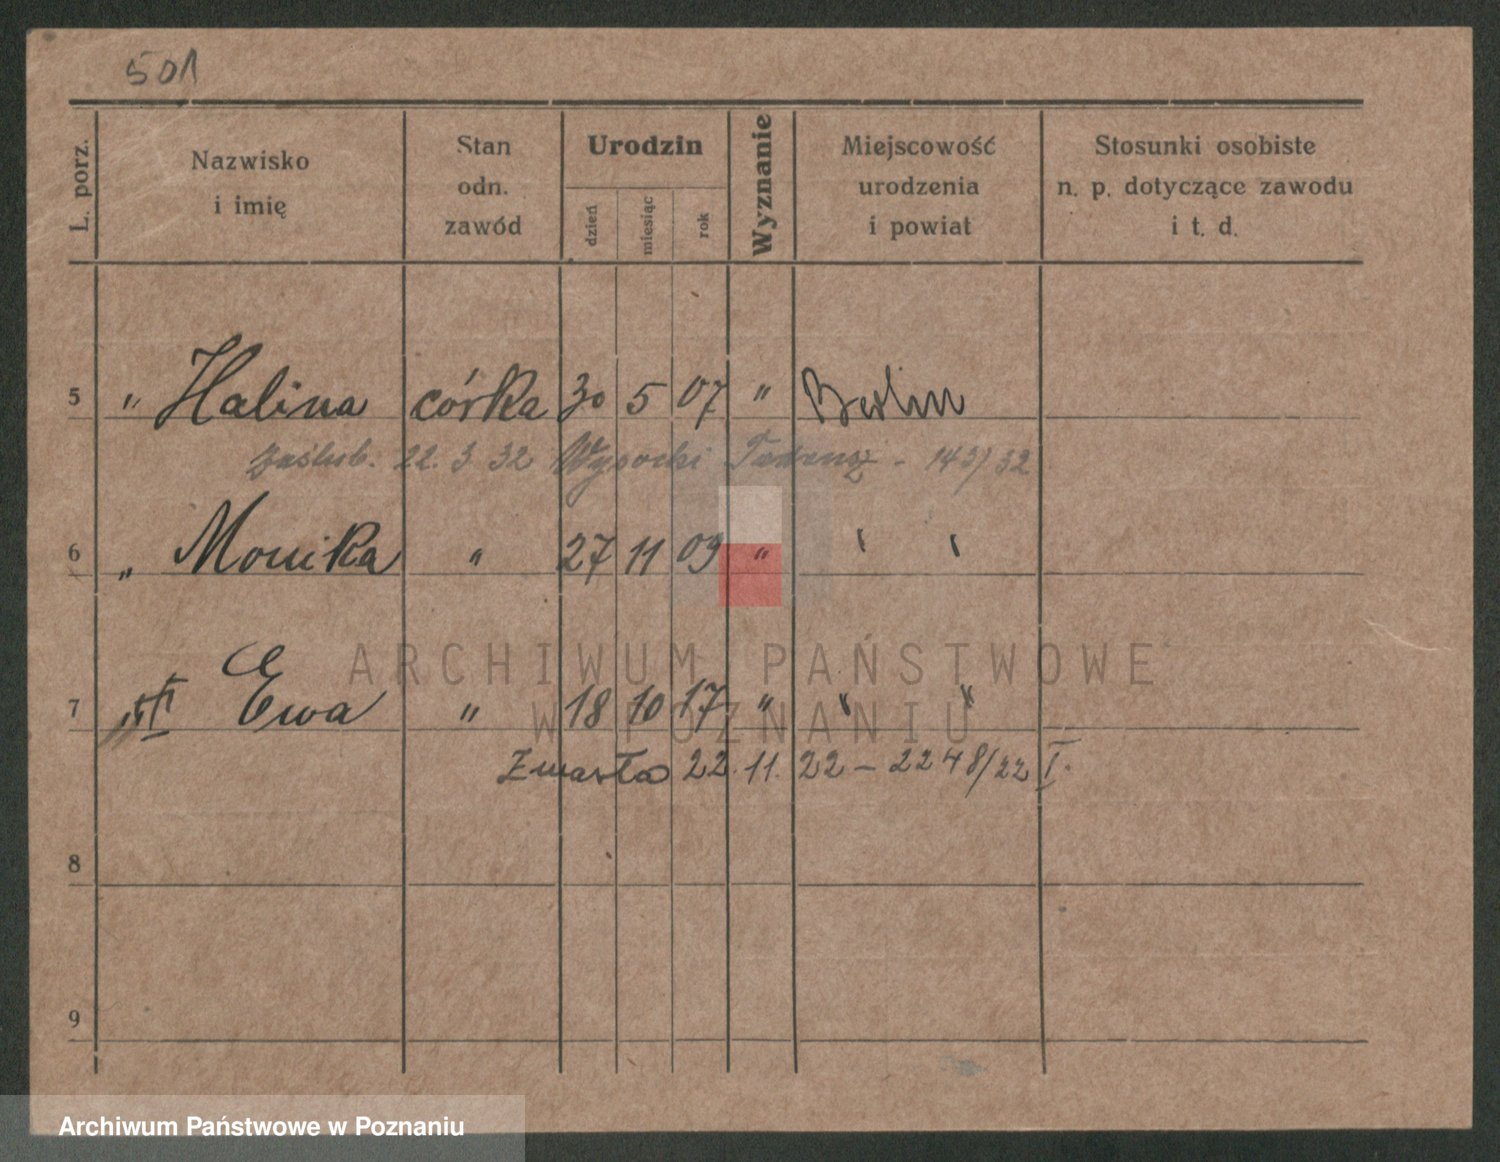 501
L. porz.
Nazwisko
i imię
Stan
odn.
zawód
Urodzin
dzień
miesiąc
rok
Wyznanie
Miejscowość
urodzenia
i powiat
Stosunki osobiste
n. p. dotyczące zawodu
i t. d.
5 " Halina córka 30 5 07 " Berlin
zaślub. 22. 3 32 Wysocki Tadeusz - 143/32
6 " Monika " 27 11 09 " " "
ARCHIWUM PAŃSTWOWE
W POZNANIU
7 " † Ewa " 18 10 17 " " "
Zmarła 22. 11. 22 – 2248/22 I.
8
9
Archiwum Państwowe w Poznaniu